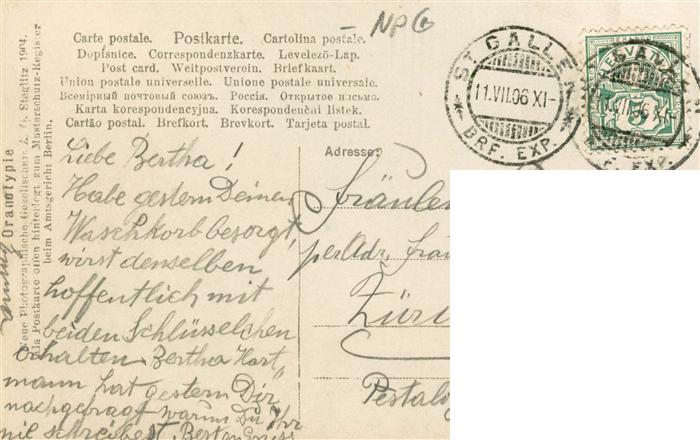 NPG
Carte postale. Postkarte. Cartolina postale.
Dopisnice. Correspondenzkarte. Levelező-Lap.
Post card. Weltpostverein. Briefkaart.
Union postale universelle. Unione postale universale.
Всемірный почтовый союзъ. Россія. Открытое письмо.
Karta korespondencyjna. Korespondenční lístek.
Cartão postal. Brefkort. Brevkort. Tarjeta postal.
ST. GALLEN
11.VII.06 XI-
BRF. EXP.
11.VII.06 XI-
F. EXP.
Oranotypie
Neue Photographische Gesellschaft A. G. Steglitz 1904.
Als Postkarte offen hinterlegt zum Musterschutz-Register
beim Amtsgericht Berlin.
Liebe Bertha!
Habe gestern Deinen
Waschkorb besorgt,
wirst denselben
hoffentlich mit
beiden Schlüsselchen
erhalten. Bertha Hart-
mann hat gestern Dir
nachgefragt warum Du Ihr
nie schreibest. Besten Gruss
Adresse:
Fräulein
per Adr. Frau
Züri
Pestalo